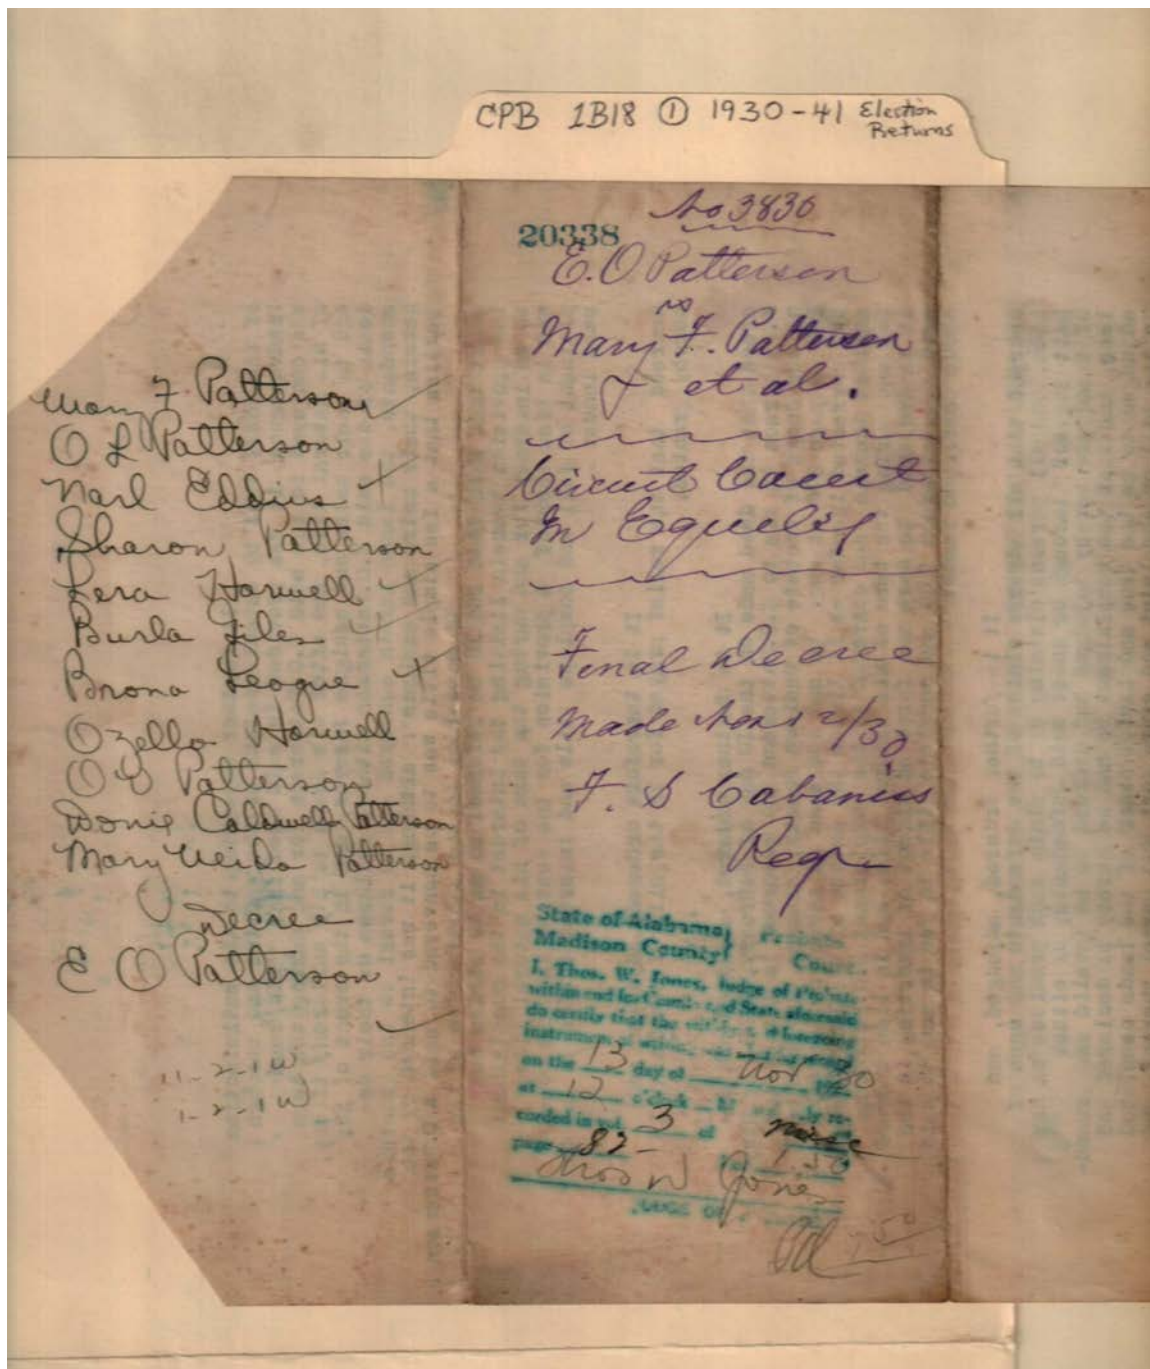 CPB 1B18 ① 1930-41 Election
Returns
Mary F Patterson
O L Patterson
Narl Eddins
Sharon Patterson
Lera Harwell
Burla Giles
Brona League
Ozella Harwell
O O Patterson
Donie Caldwell Patterson
Mary Patterson
Decree
E O Patterson
11-2-1W
1-2-1W
No 3830
20338
E. O Patterson
vs
Mary F. Patterson
et al.
Circuit Court
In Equity
Final Decree
Made Nov 12/30
F. S Cabaniss
Regr
State of Alabama, Probate
Madison County Court
I, Thos. W. Jones, Judge of Probate
within and for County and State aforesaid
do certify that the within & foregoing
instrument of writing was filed for record
on the 13 day of Nov 1930
at 12 o'clock M re-
corded in vol. 3 of Misc
page 82
Thos W Jones
JUDGE OF
Pd